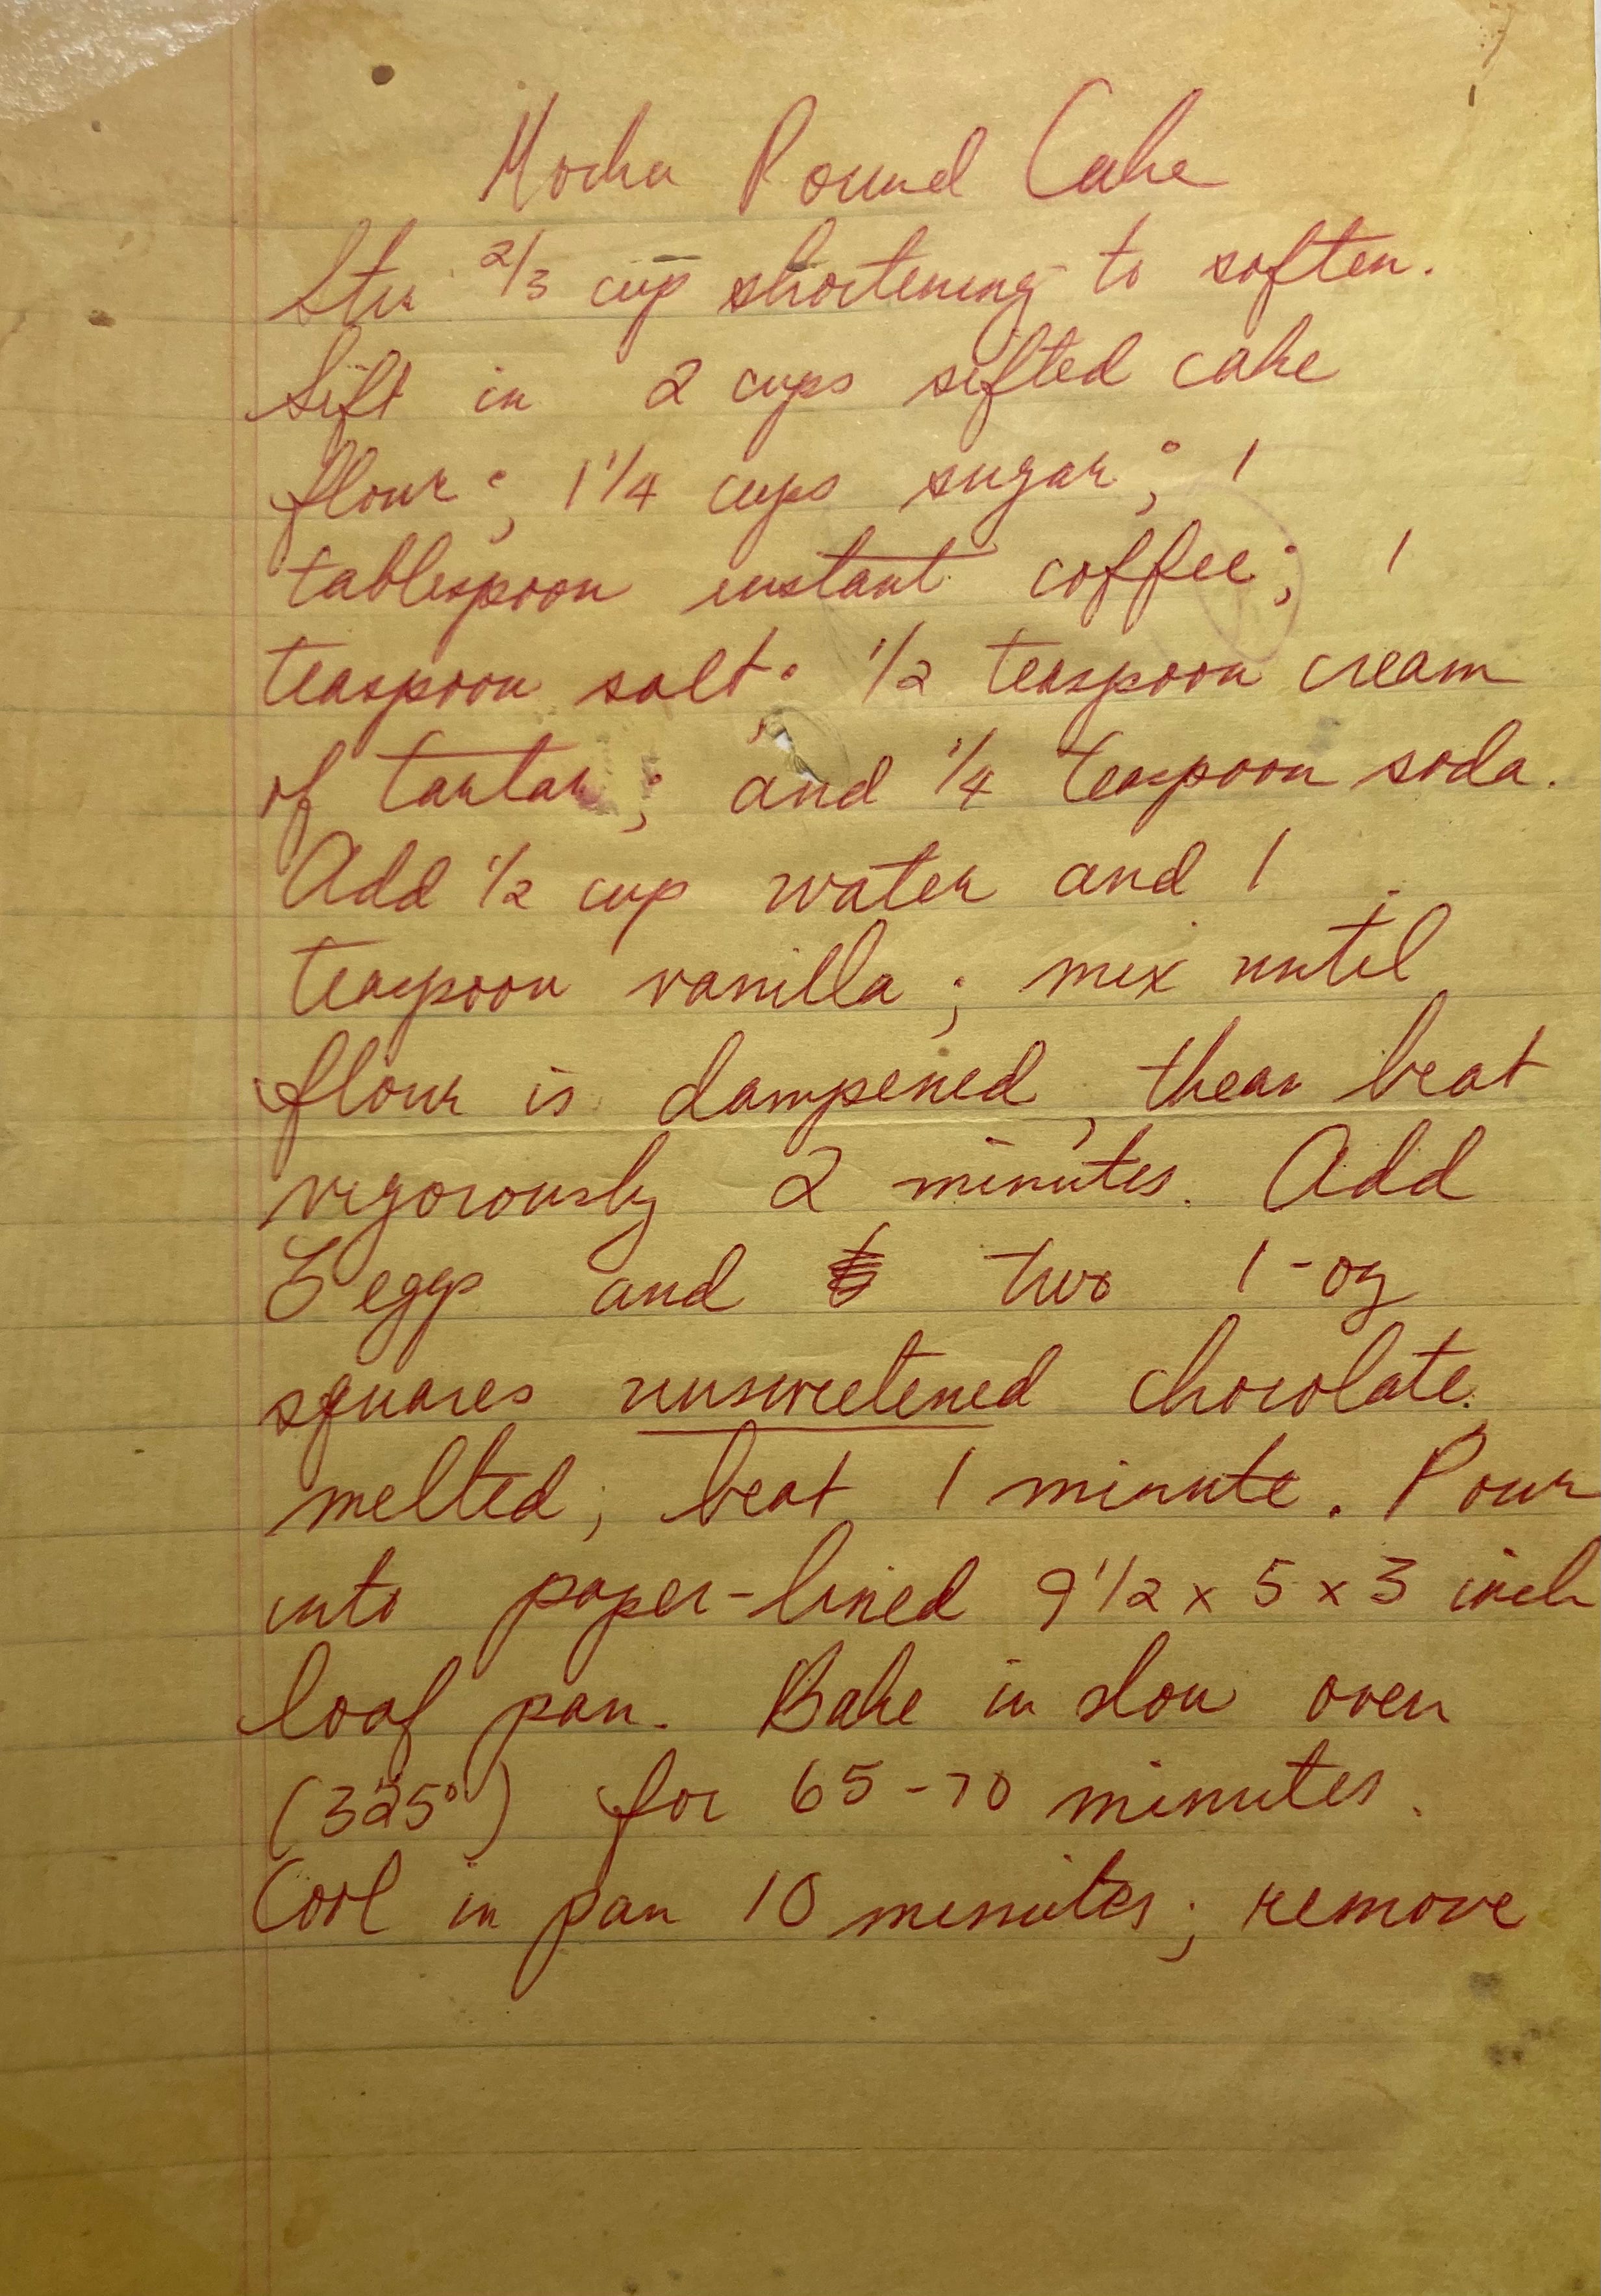 Mocha Pound Cake
Stir 2/3 cup shortening to soften.
Sift in 2 cups sifted cake
flour; 1 1/4 cups sugar; 1
tablespoon instant coffee; 1
teaspoon salt; 1/2 teaspoon cream
of tartar; and 1/4 teaspoon soda.
Add 1/2 cup water and 1
teaspoon vanilla; mix until
flour is dampened, then beat
vigorously 2 minutes. Add
3 eggs and two 1-oz
squares unsweetened chocolate,
melted; beat 1 minute. Pour
into paper-lined 9 1/2 x 5 x 3 inch
loaf pan. Bake in slow oven
(325°) for 65-70 minutes.
Cool in pan 10 minutes; remove